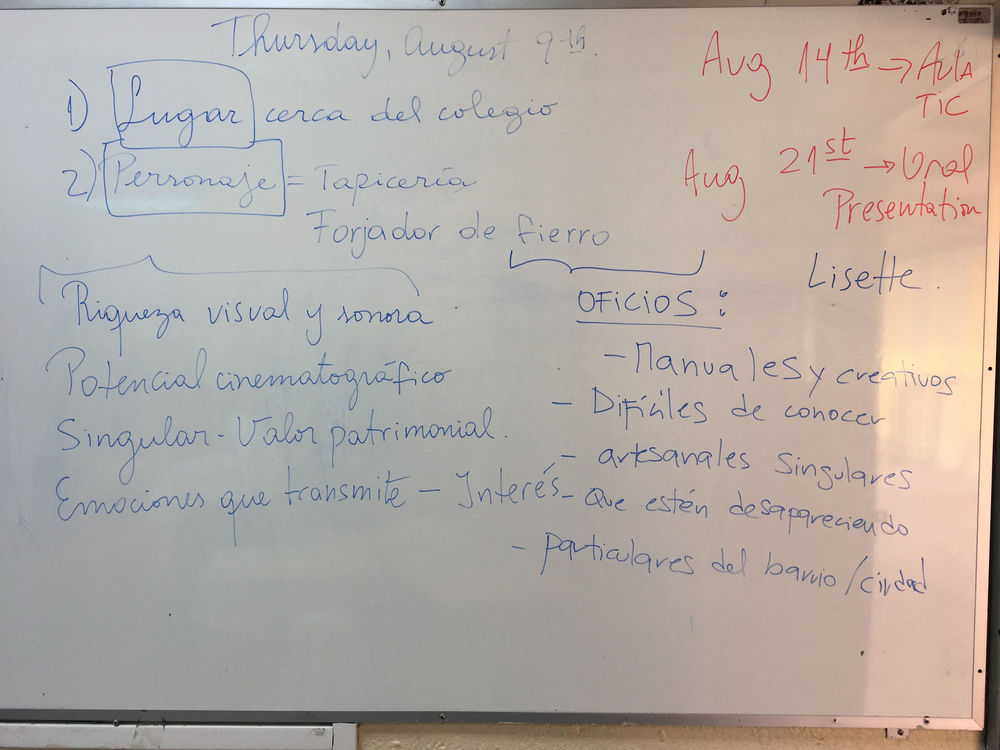 Thursday, August 9th.
1) Lugar cerca del colegio
2) Personaje = Tapicería
Forjador de fierro
Aug 14th → Aula
TIC
Aug 21st → Oral
Presentation
Riqueza visual y sonora
Potencial cinematográfico
Singular - Valor patrimonial.
Emociones que transmite - Interés
Lisette.
OFICIOS:
- Manuales y creativos
- Difíciles de conocer
- artesanales singulares
- Que estén desapareciendo
- particulares del barrio/ciudad